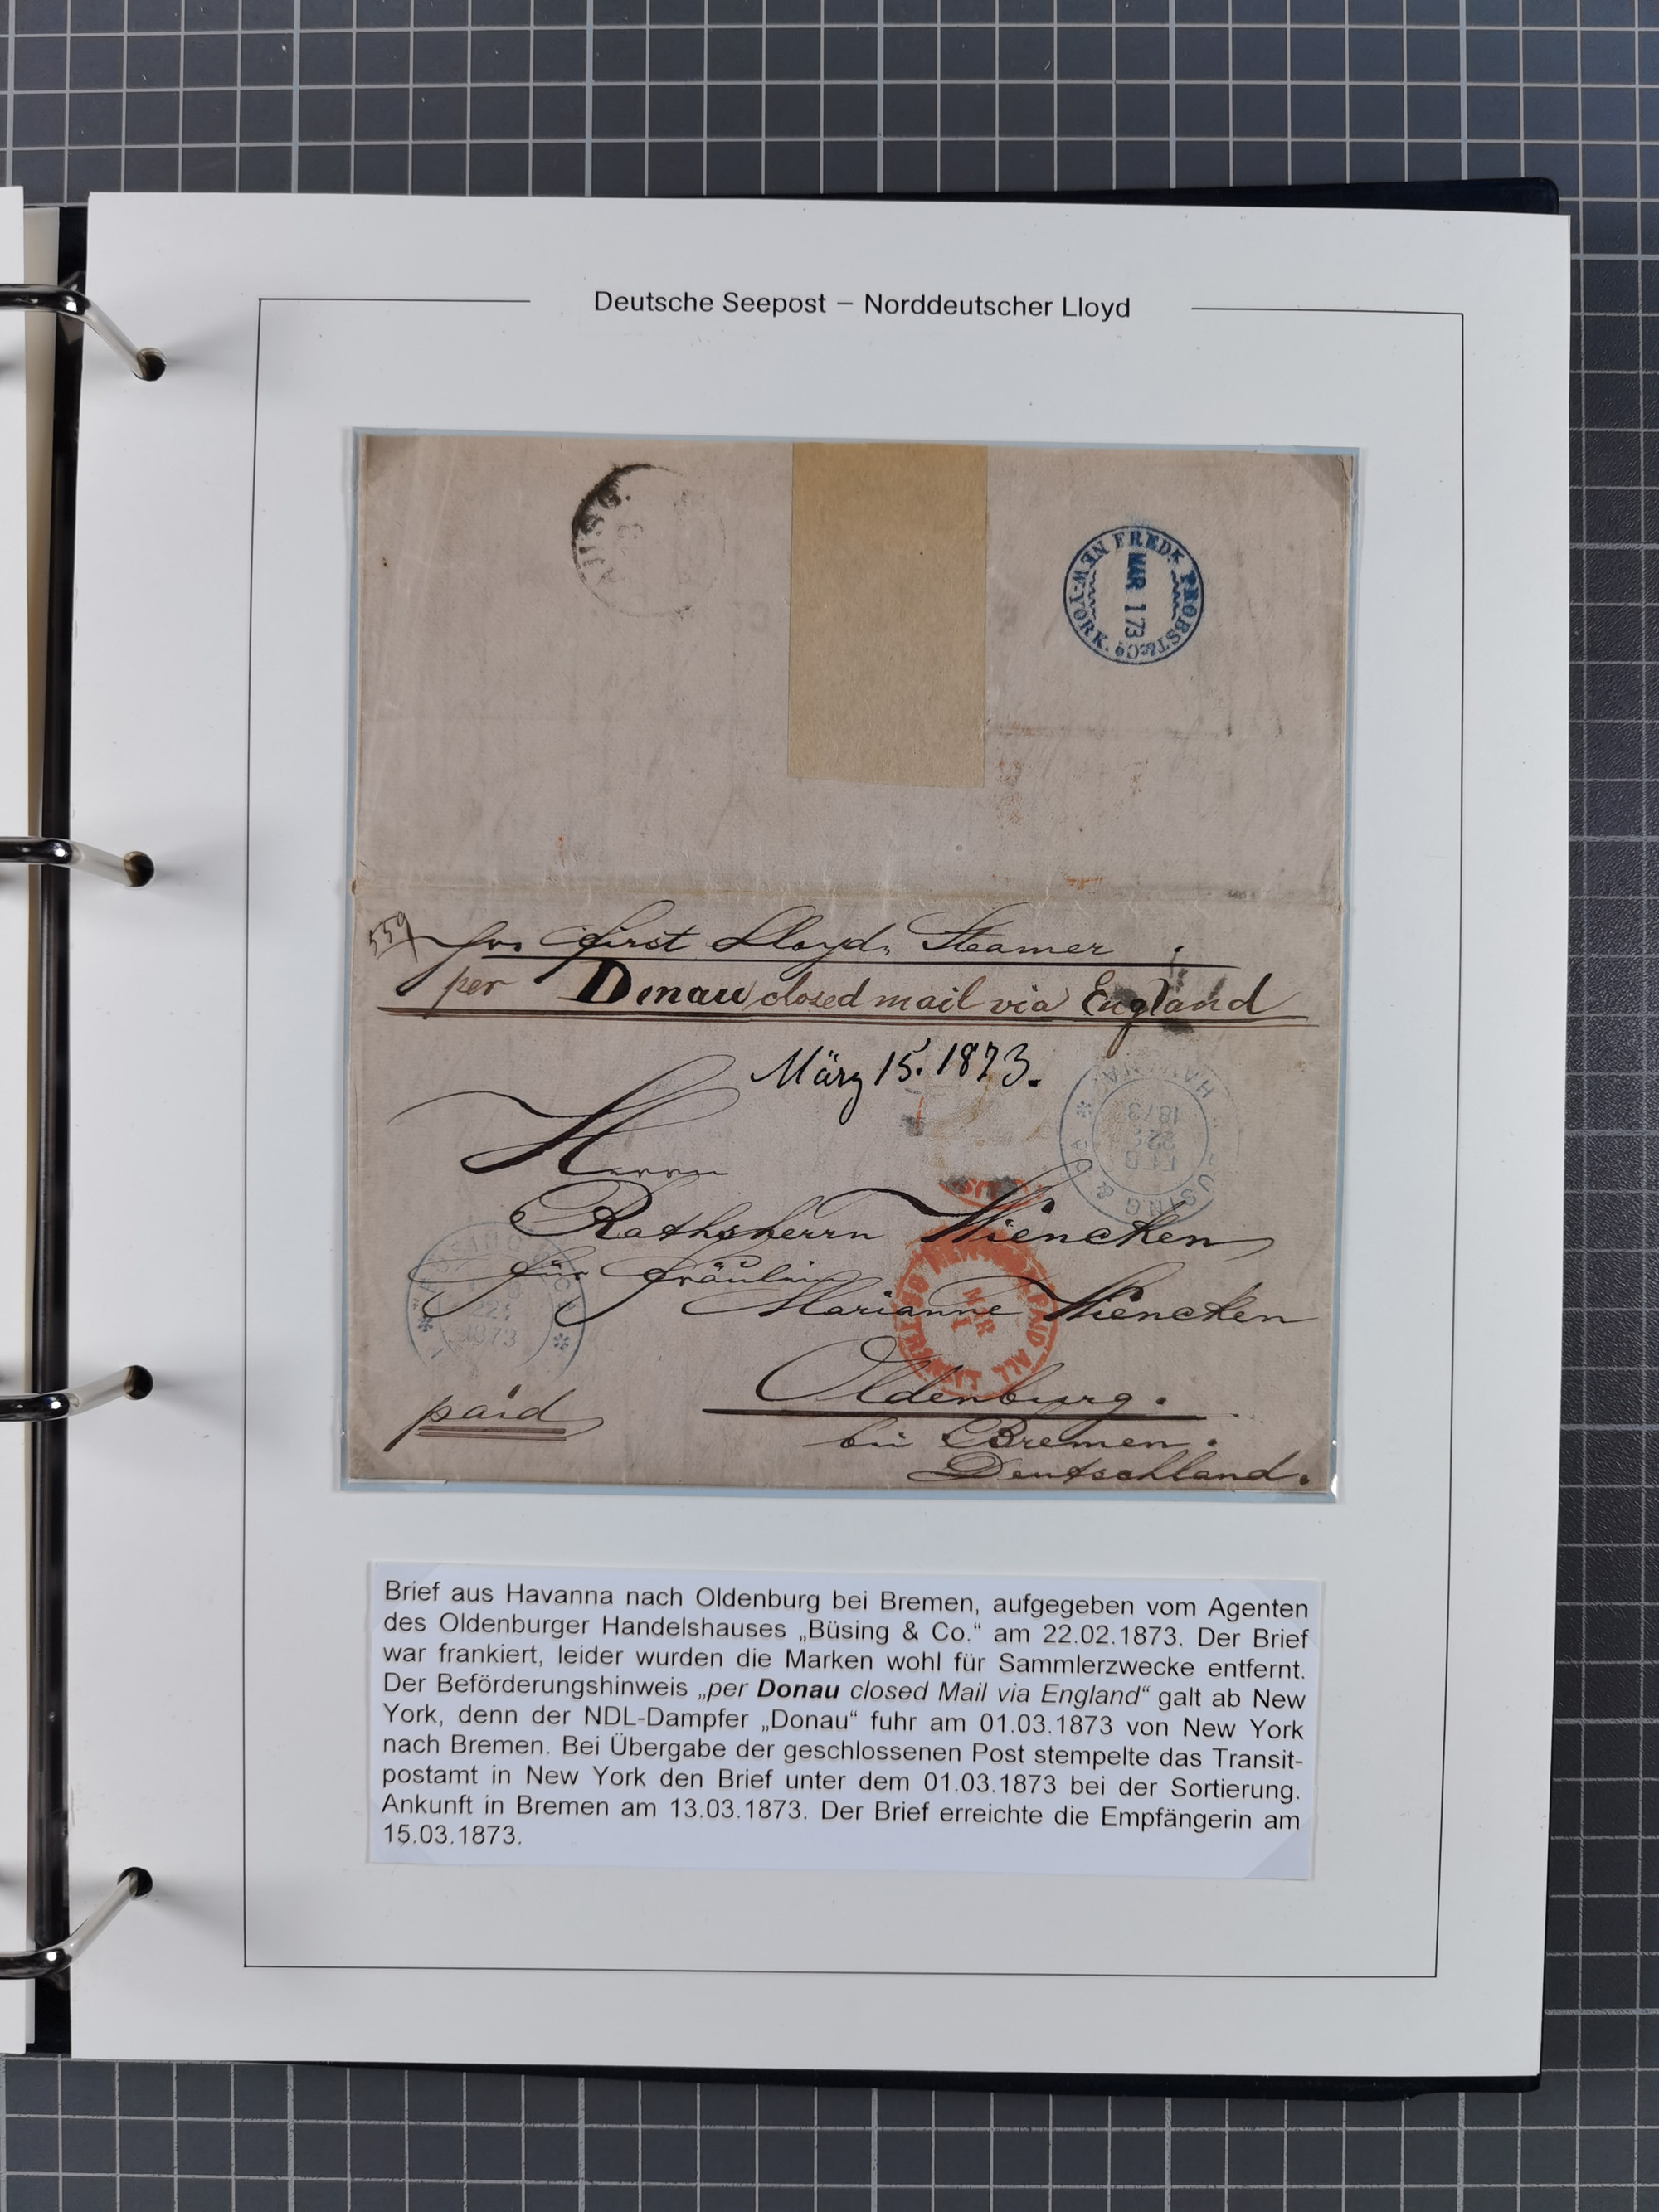 Deutsche Seepost – Norddeutscher Lloyd
AUSG.
NEW-YORK. FREDK PROBST & Co
MAR 1 73
559
first Lloyds Steamer
per Donau closed mail via England
März 15. 1873.
HAVANA
BÜSING & Ca
FEB
22
1873
Herrn
Rathsherrn Wiencken
für Fräulein
Marianne Wiencken
NEW PAID ALL
MAR
1
22
1873
Oldenburg.
paid
bei Bremen.
Deutschland.
Brief aus Havanna nach Oldenburg bei Bremen, aufgegeben vom Agenten
des Oldenburger Handelshauses „Büsing & Co.“ am 22.02.1873. Der Brief
war frankiert, leider wurden die Marken wohl für Sammlerzwecke entfernt.
Der Beförderungshinweis „per Donau closed Mail via England“ galt ab New
York, denn der NDL-Dampfer „Donau“ fuhr am 01.03.1873 von New York
nach Bremen. Bei Übergabe der geschlossenen Post stempelte das Transit-
postamt in New York den Brief unter dem 01.03.1873 bei der Sortierung.
Ankunft in Bremen am 13.03.1873. Der Brief erreichte die Empfängerin am
15.03.1873.